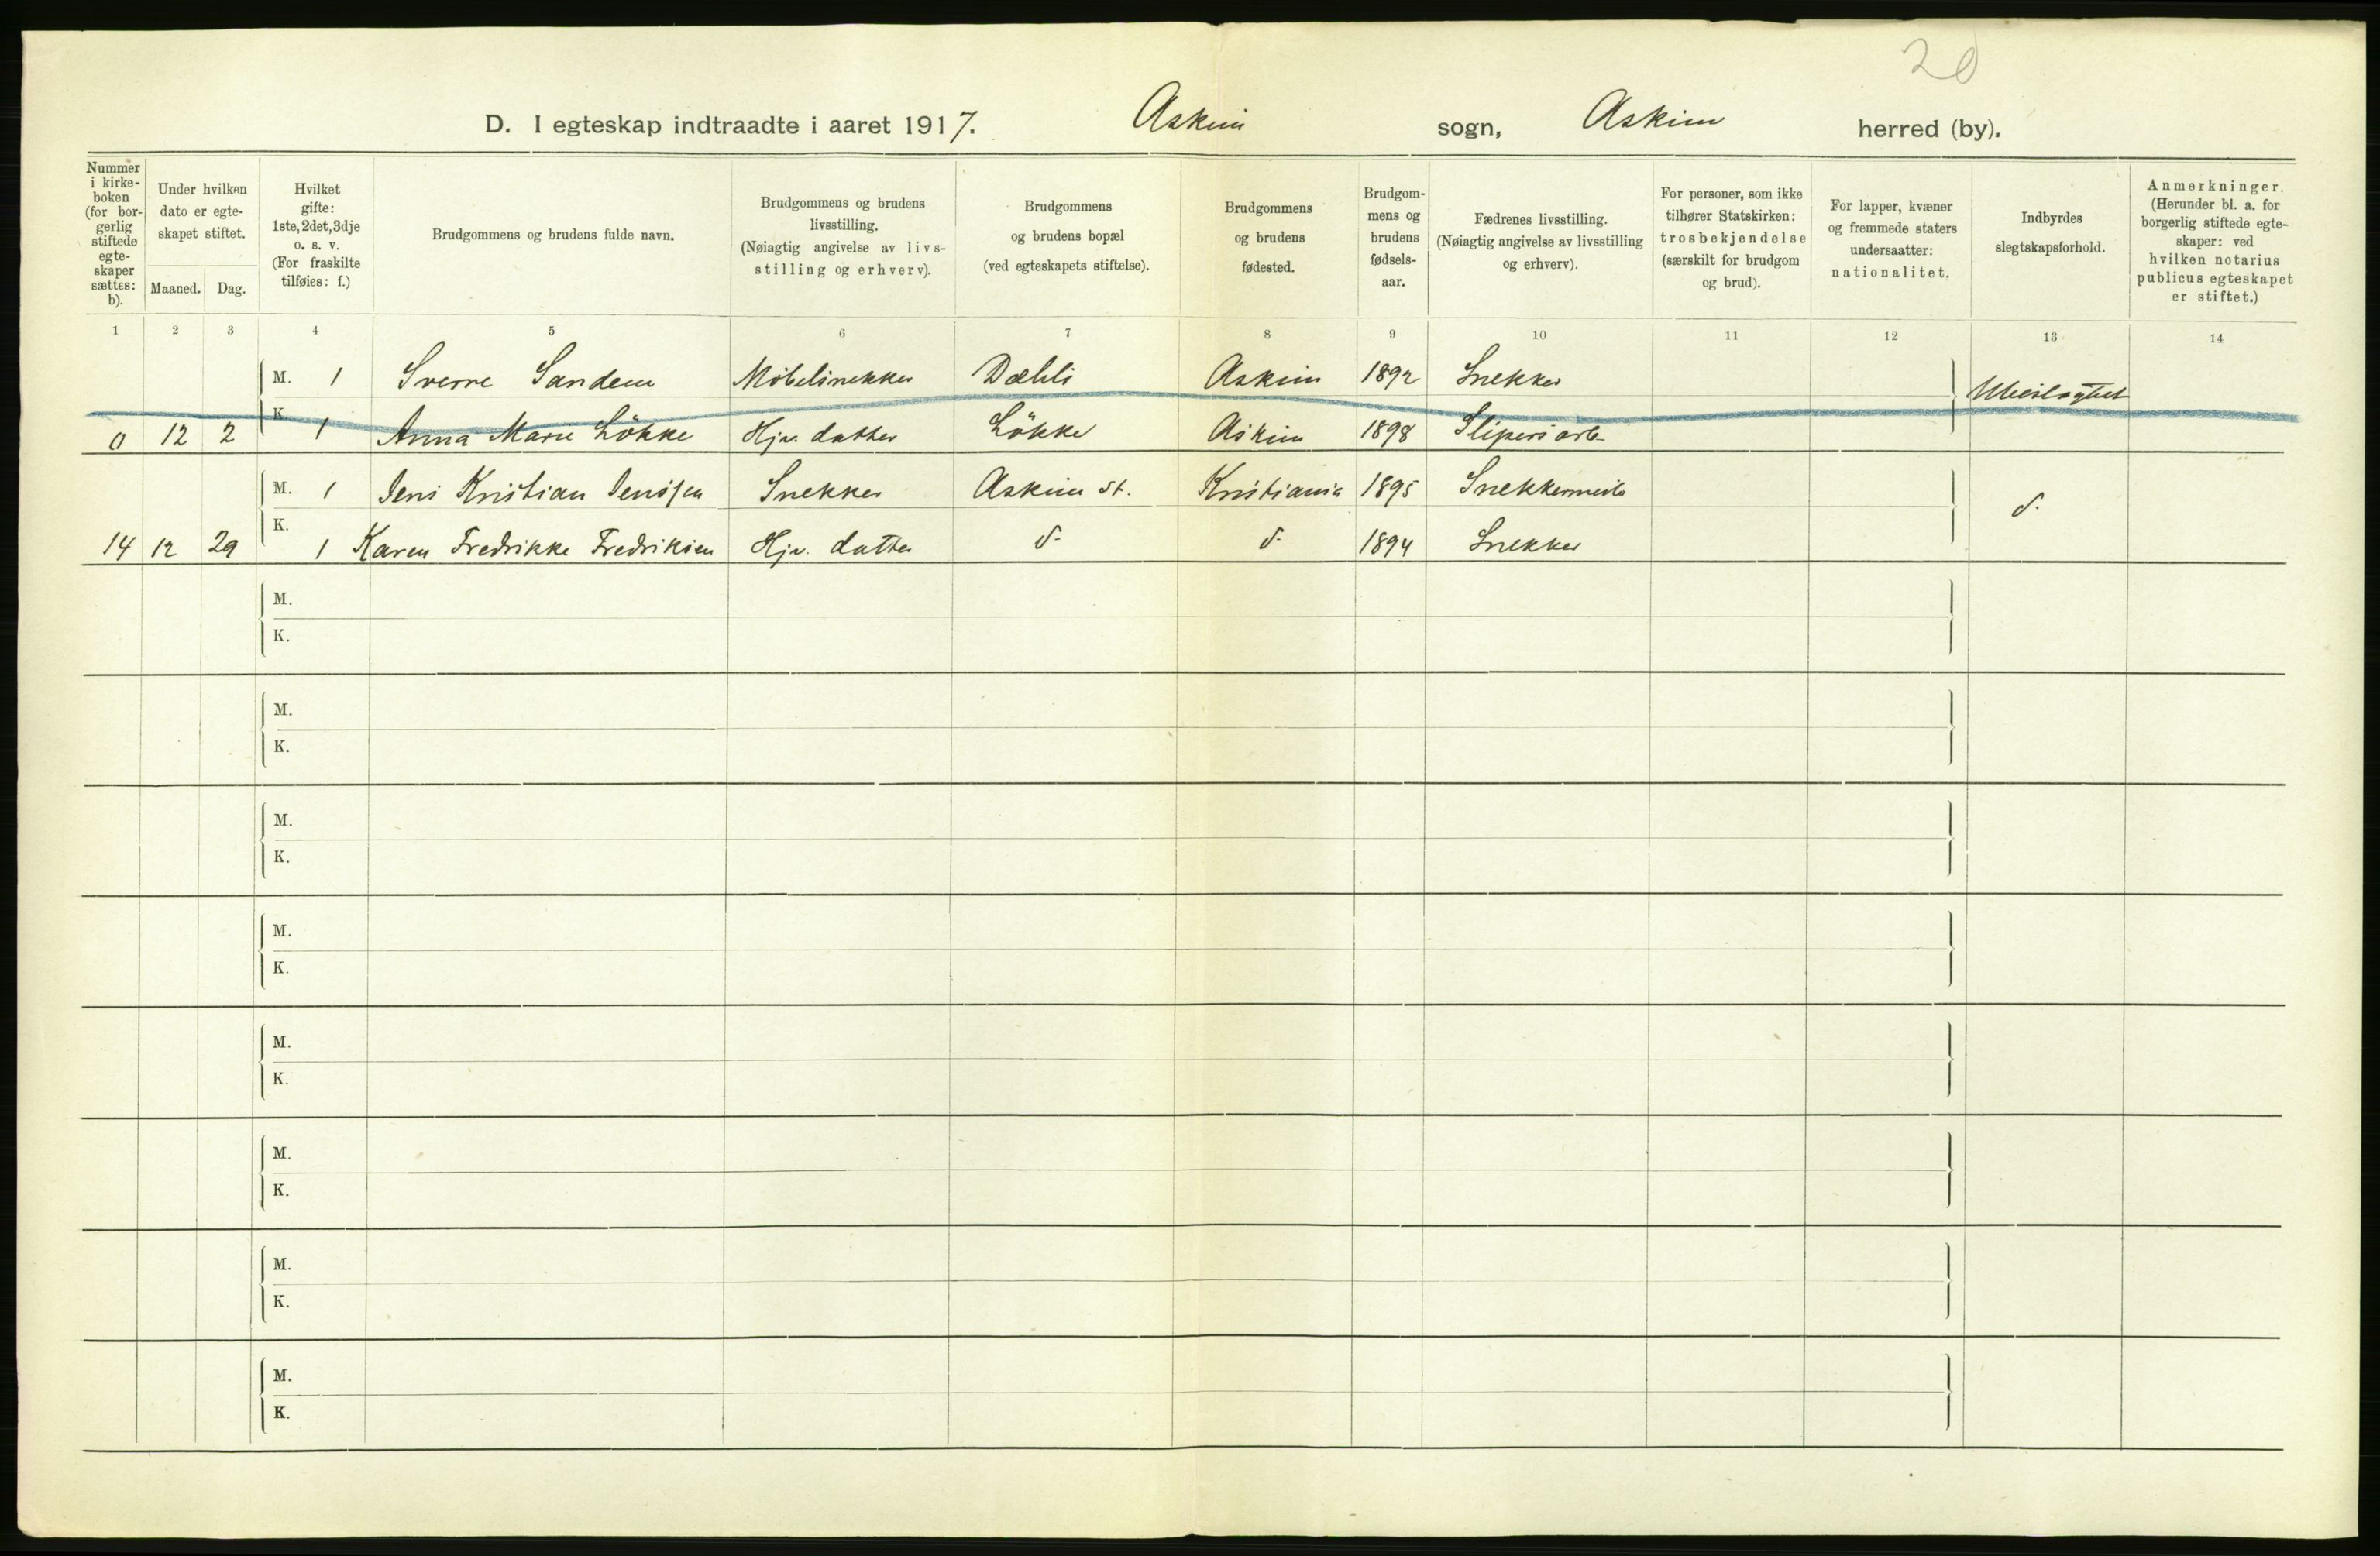 20
D. I egteskap indtraadte i aaret 1917. Askim sogn, Askim herred (by).
Nummer i kirke- boken (for bor- gerlig stiftede egte- skaper sættes: b).
Under hvilken dato er egte- skapet stiftet.
Maaned. Dag.
Hvilket gifte: 1ste, 2det, 3dje o. s. v. (For fraskilte tilføies: f.)
Brudgommens og brudens fulde navn.
Brudgommens og brudens livsstilling. (Nøiagtig angivelse av livs- stilling og erhverv).
Brudgommens og brudens bopæl (ved egteskapets stiftelse).
Brudgommens og brudens fødested.
Brudgom- mens og brudens fødsels- aar.
Fædrenes livsstilling. (Nøiagtig angivelse av livsstilling og erhverv).
For personer, som ikke tilhører Statskirken: trosbekjendelse (særskilt for brudgom og brud).
For lapper, kvæner og fremmede staters undersaatter: nationalitet.
Indbyrdes slegtskapsforhold.
Anmerkninger. (Herunder bl. a. for borgerlig stiftede egte- skaper: ved hvilken notarius publicus egteskapet er stiftet.)
1 2 3 4 5 6 7 8 9 10 11 12 13 14
M. 1 Sverre Sandem Möbelsnekker Dæhli Askim 1892 Snekker Ubeslægtet
0 12 2 K. 1 Anna Marie Lökke Hjv. datter Lökke Askim 1898 Sliperiarb.
M. 1 Jens Kristian Jenssen Snekker Askim st. Kristiania 1895 Snekkermester d.
14 12 29 K. 1 Karen Fredrikke Fredriksen Hjv. datter d. d. 1894 Snekker
M.
K.
M.
K.
M.
K.
M.
K.
M.
K.
M.
K.
M.
K.
M.
K.